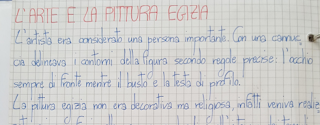 L'ARTE E LA PITTURA EGIZIA
L'artista era considerato una persona importante. Con una cannuc
cia delineava i contorni della figura secondo regole precise: l'occhio
sempre di fronte mentre il busto e la testa di profilo.
La pittura egizia non era decorativa ma religiosa, infatti veniva realiz